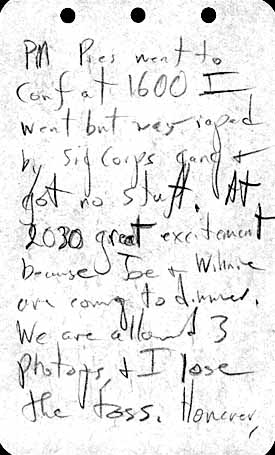 PM Pres went to
Conf at 1600 I
went but was roped
by Sig Corps gang &
got no stuff. At
2030 great excitement
because Joe & Winnie
are coming to dinner.
We are allowed 3
photogs, & I lose
the toss. However,